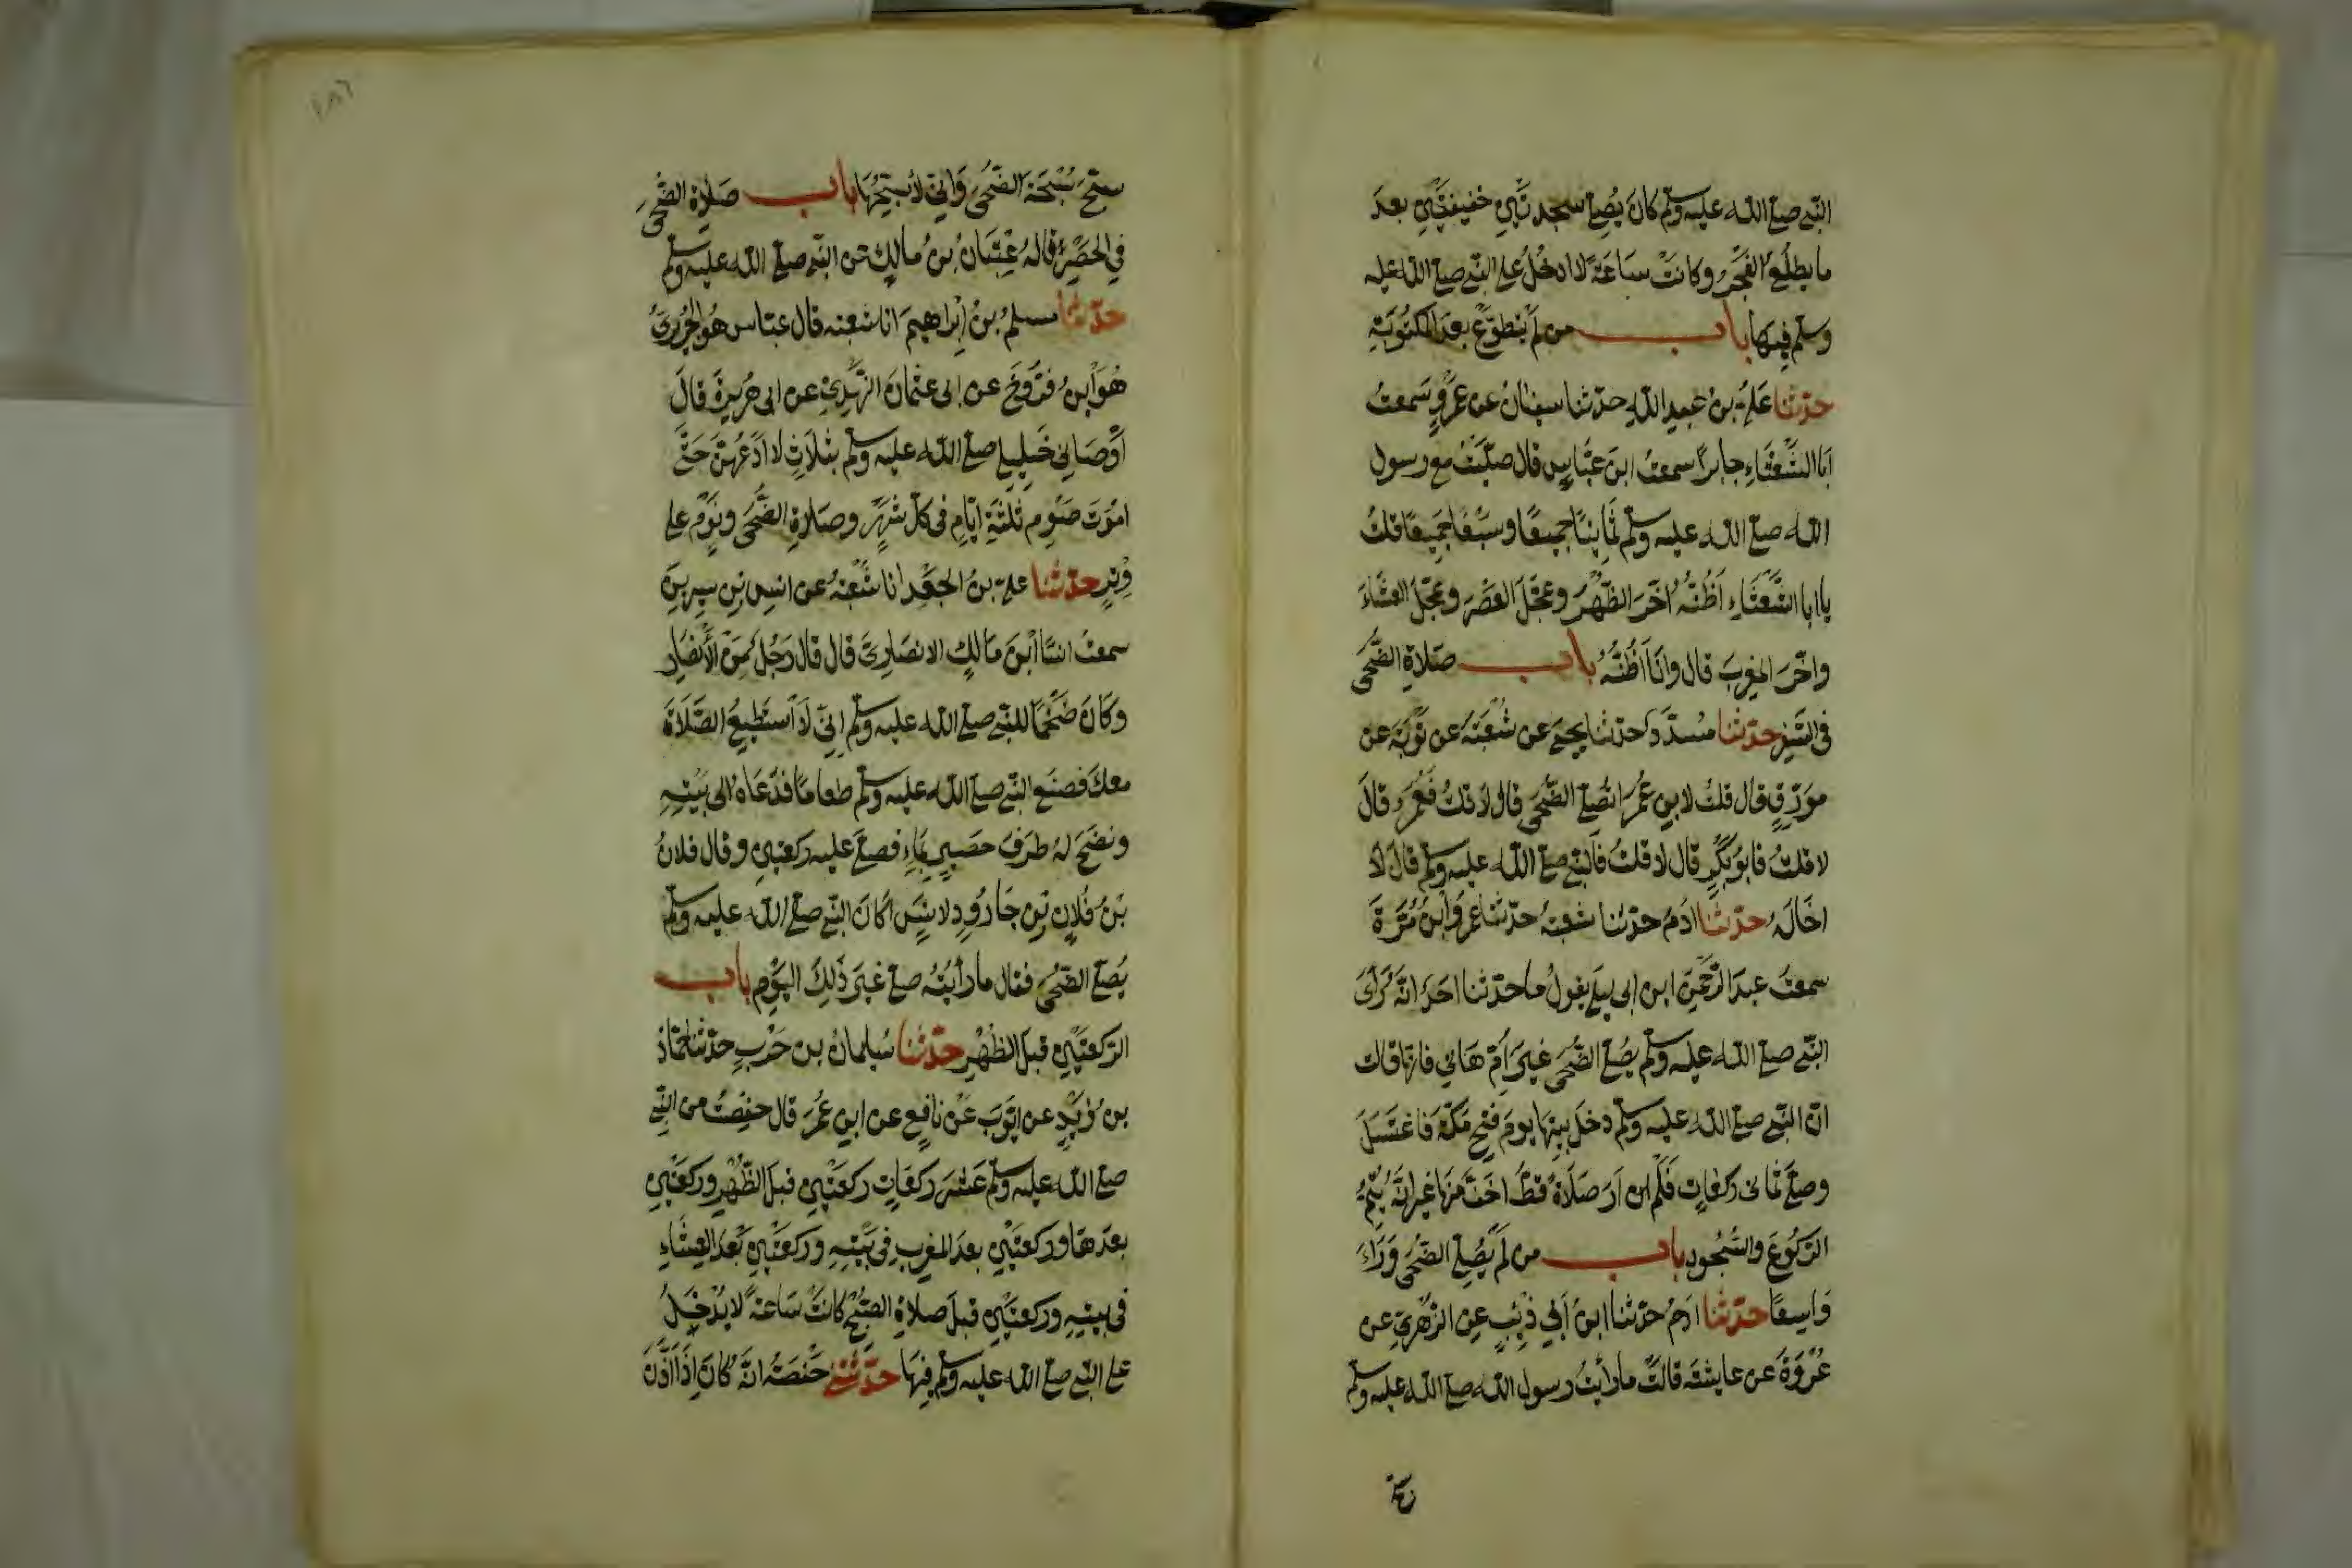 النبي صلى الله عليه وسلم كان يصلي سجدتين خفيفتين بعد
ما يطلع الفجر وكانت ساعة لا ادخل على النبي صلى الله عليه
وسلم فيها باب من لم يتطوع بعد المكتوبة
حدثنا علي بن عبد الله حدثنا سفيان عن عمرو سمعت
ابا الشعثاء جابرا سمعت ابن عباس قال صليت مع رسول
الله صلى الله عليه وسلم ثمانيا جميعا وسبعا جميعا قلت
يا ابا الشعثاء اظنه اخر الظهر وعجل العصر وعجل العشاء
واخر المغرب قال وانا اظنه باب صلاة الضحى
في السفر حدثنا مسدد حدثنا يحيى عن شعبة عن توبة عن
مورق قال قلت لابن عمر اتصلي الضحى قال لا قلت فعمر قال
لا قلت فابو بكر قال لا قلت فالنبي صلى الله عليه وسلم قال لا
اخاله حدثنا ادم حدثنا شعبة حدثنا عمرو ابن مرة
سمعت عبد الرحمن ابن ابي ليلى يقول ما حدثنا احد انه راى
النبي صلى الله عليه وسلم يصلي الضحى غير ام هاني فانها قالت
ان النبي صلى الله عليه وسلم دخل بيتها يوم فتح مكة فاغتسل
وصلى ثماني ركعات فلم ار صلاة قط اخف منها غير انه يتم
الركوع والسجود باب من لم يصل الضحى وراه
واسعا حدثنا ادم حدثنا ابن ابي ذئب عن الزهري عن
عروة عن عايشة قالت ما رايت رسول الله صلى الله عليه وسلم
سبح
سبح سبحة الضحى واني لاسبحها باب صلاة الضحى
في الحضر قاله عتبان بن مالك عن النبي صلى الله عليه وسلم
حدثنا مسلم بن ابراهيم انا شعبة قال عباس هو الجريري
هو ابن فروخ عن ابي عثمان النهدي عن ابي هريرة قال
اوصاني خليلي صلى الله عليه وسلم بثلاث لا ادعهن حتى
اموت صوم ثلثة ايام في كل شهر وصلاة الضحى ونوم على
وتر حدثنا علي بن الجعد انا شعبة عن انس بن سيرين
سمعت انسا ابن مالك الانصاري قال قال رجل من الانصار
وكان ضخما للنبي صلى الله عليه وسلم اني لا استطيع الصلاة
معك فصنع النبي صلى الله عليه وسلم طعاما فدعاه الى بيته
ونضح له طرف حصير بماء فصلى عليه ركعتين وقال فلان
بن فلان بن جارود لانس اكان النبي صلى الله عليه وسلم
يصلي الضحى فقال ما رأيته صلى غير ذلك اليوم باب
الركعتين قبل الظهر حدثنا سليمان بن حرب حدثنا حماد
بن زيد عن ايوب عن نافع عن ابن عمر قال حفظت من النبي
صلى الله عليه وسلم عشر ركعات ركعتين قبل الظهر وركعتين
بعدها وركعتين بعد المغرب في بيته وركعتين بعد العشاء
في بيته وركعتين قبل صلاة الصبح كانت ساعة لا يدخل
على النبي صلى الله عليه وسلم فيها حدثتني حفصة انه كان اذا اذن